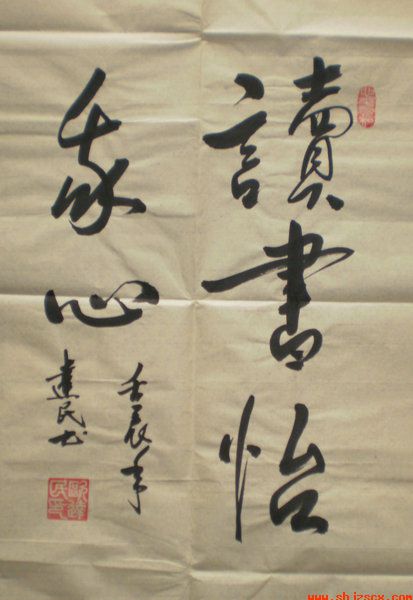 讀書怡
我心
壬辰年
建民书
www.shjzscx.com